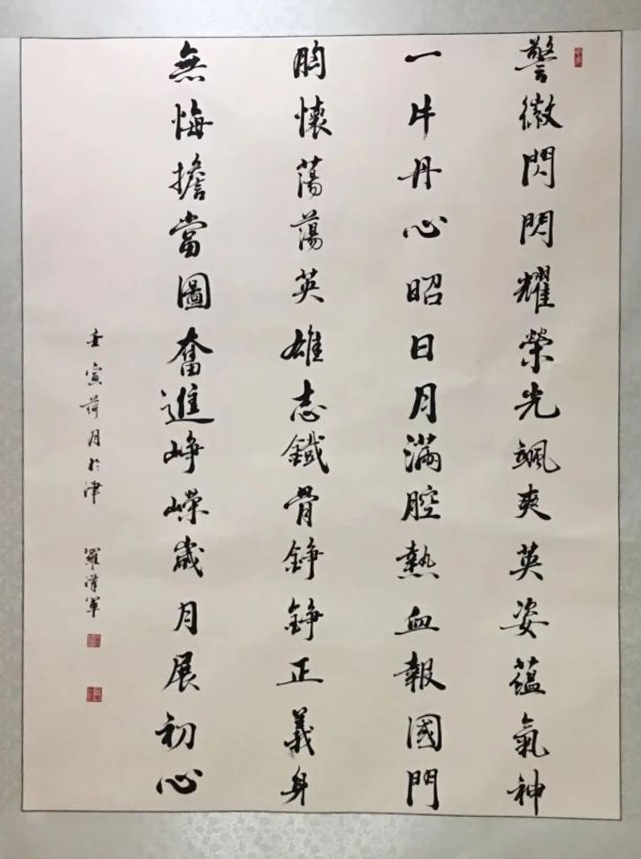 警徽閃閃耀榮光颯爽英姿蘊氣神
一片丹心昭日月滿腔熱血報國門
胸懷蕩蕩英雄志鐵骨錚錚正義身
無悔擔當圖奮進崢嶸歲月展初心
壬寅荷月於津 羅澤軍